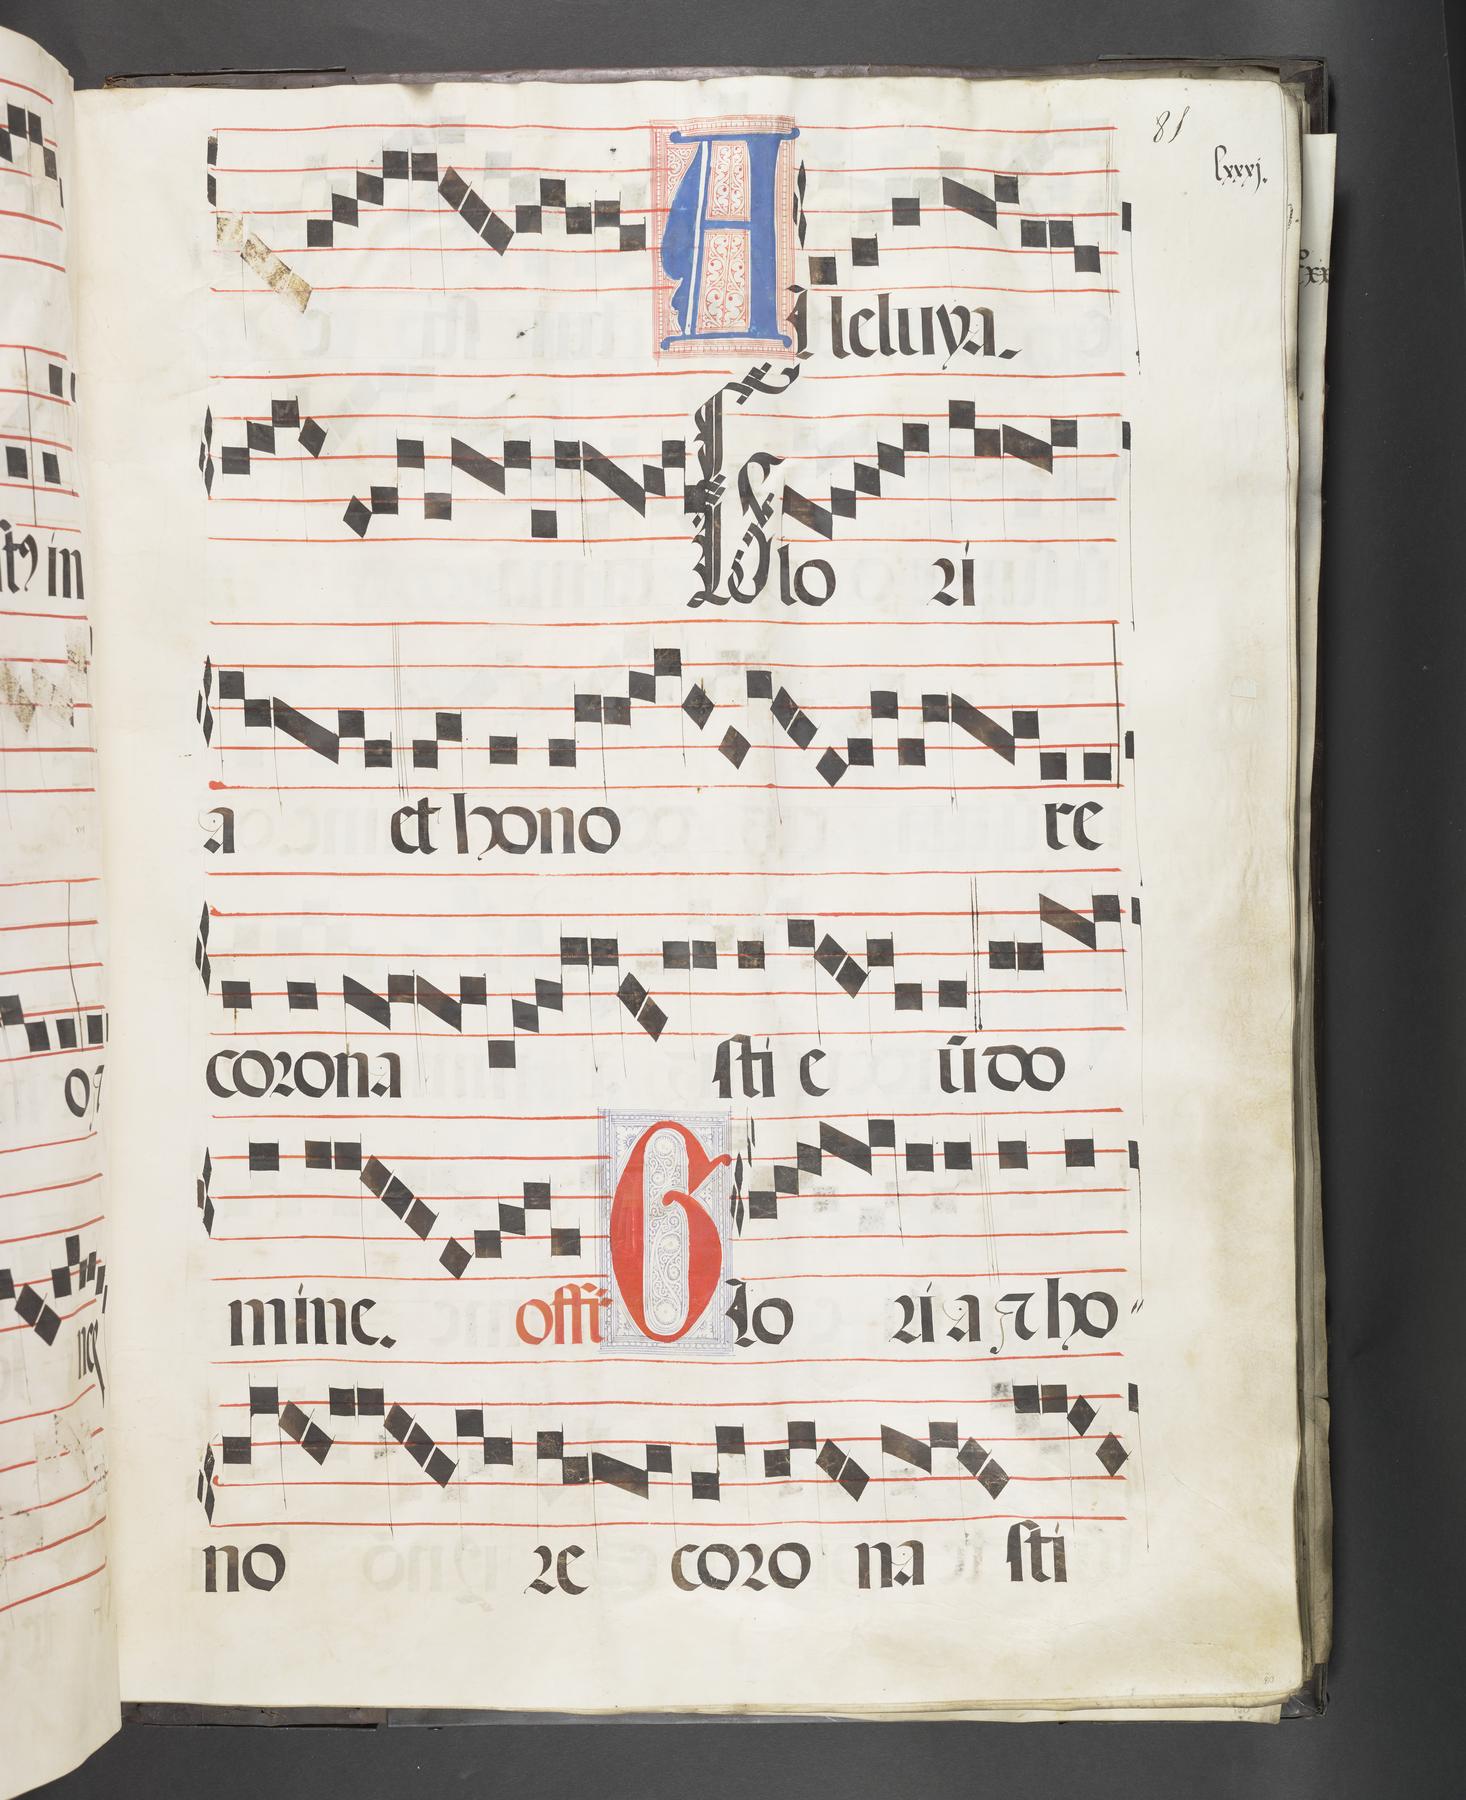 81
lxxxj.
Alleluya.
Glo ri
a et hono re
corona sti e ũdo
mine. offi Glo ri a ⁊ ho
no re coro na sti